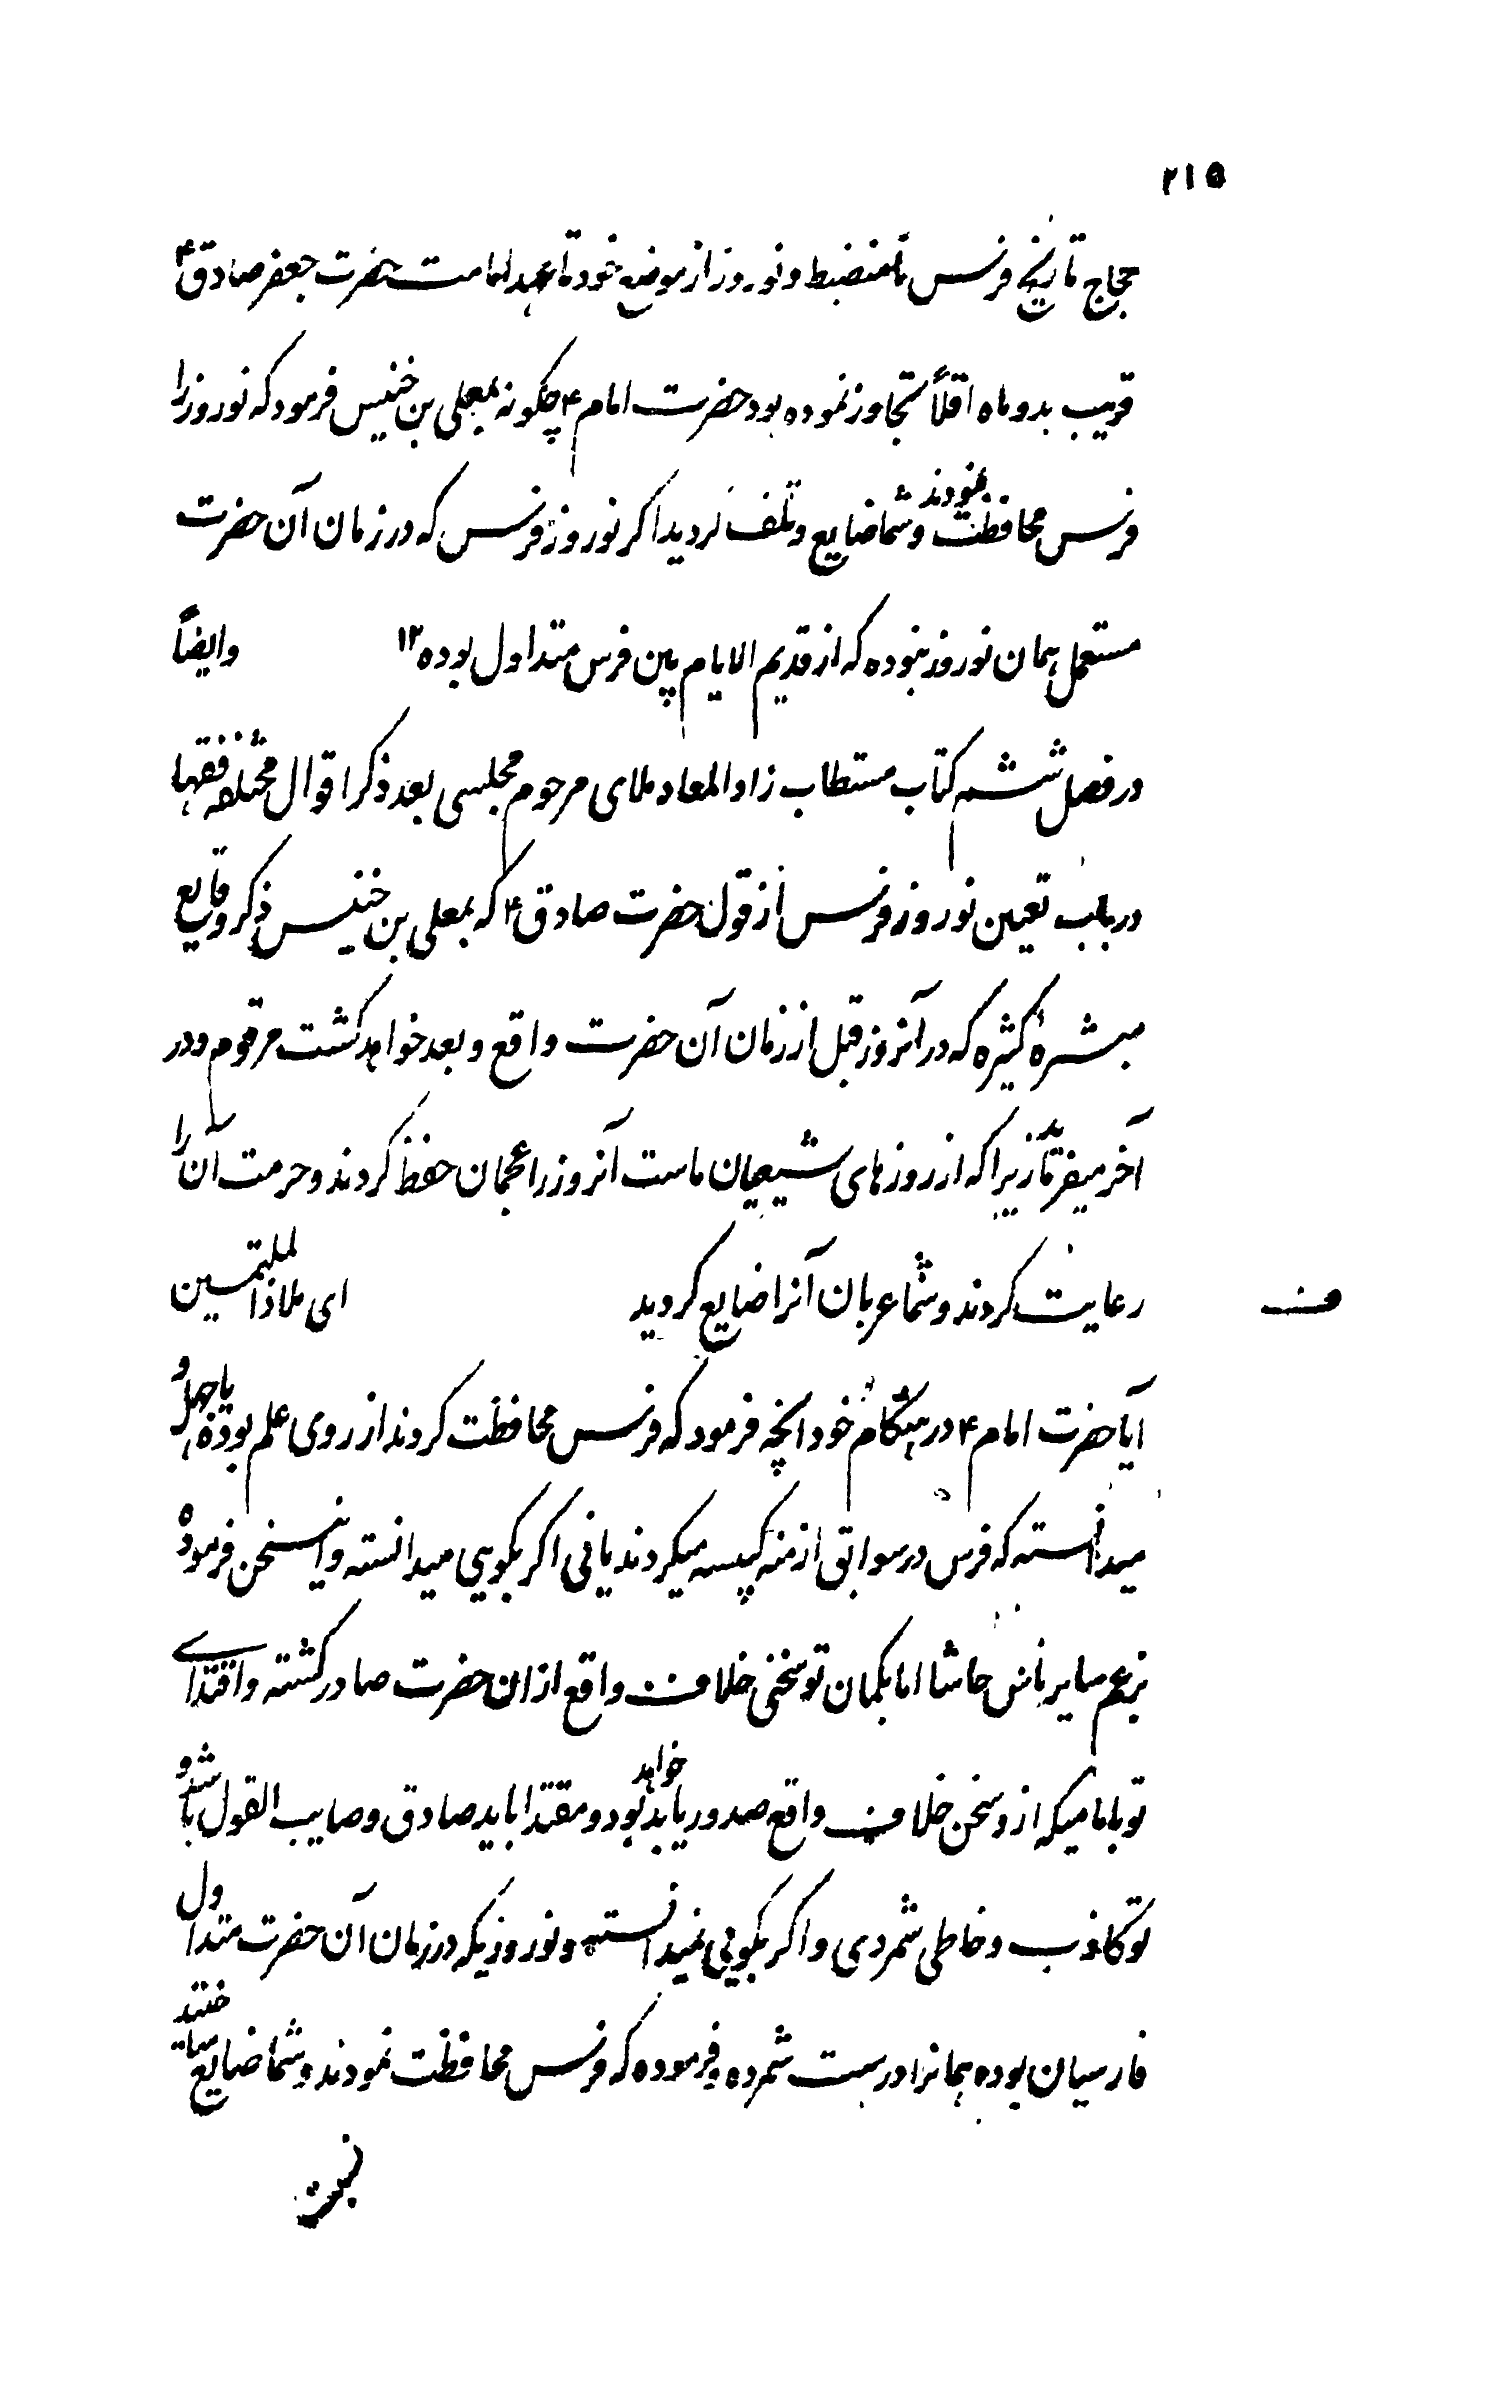 ۲۱۵
حجاج تاریخ فرس نامنضبط و نوروز از موضع خود تا عهد امامت حضرت جعفر صادق ۴
قریب بدو ماه اقلاً تجاوز نموده بود حضرت امام ۴ چکونه بمعلی بن خنیس فرمود که نوروز را
فرس محافظت نمودند و شما ضایع و تلف کردید اکر نوروز فرس که در زمان آن حضرت
مستعمل همان نوروز نبوده که از قدیم الایام بین فرس متداول بوده ۱۲ وایضاً
در فصل ششم کتاب مستطاب زاد المعاد ملای مرحوم مجلسی بعد ذکر اقوال مختلفه فقها
در باب تعیین نوروز فرس از قول حضرت صادق ۴ که بمعلی بن خنیس ذکر وقایع
مبشره کثیره که در آنروز قبل از زمان آن حضرت واقع و بعد خواهد کشت مرقوم و در
آخر میفرماید زیرا که از روزهای شیعیان ماست آنروز را عجمان حفظ کردند و حرمت آن را
رعایت کردند و شما عربان آنرا ضایع کردید ای ملاذ الملتمسین
ف
آیا حضرت امام ۴ در هنکام خود انچه فرمود که فرس محافظت کردند از روی علم بوده یا جهل و
میدانسته که فرس در سوابق ازمنه کبیسه میکردند یا نی اکر بکویی میدانسته و این سخن فرموده
بزعم سایر ناس حاشا اما بکمان تو سخنی خلاف واقع از ان حضرت صادر کشته و اقتدای
تو بامامیکه از و سخن خلاف واقع صدور یابد خواهد بود و مقتدا باید صادق و صایب القول باشد و
تو کاذب و خاطی شمردی و اکر بکویی نمیدانسته و نوروزیکه در زمان آن حضرت متداول
فارسیان بوده همانرا درست شمرده و فرموده که فرس محافظت نمودند و شما ضایع ساختید